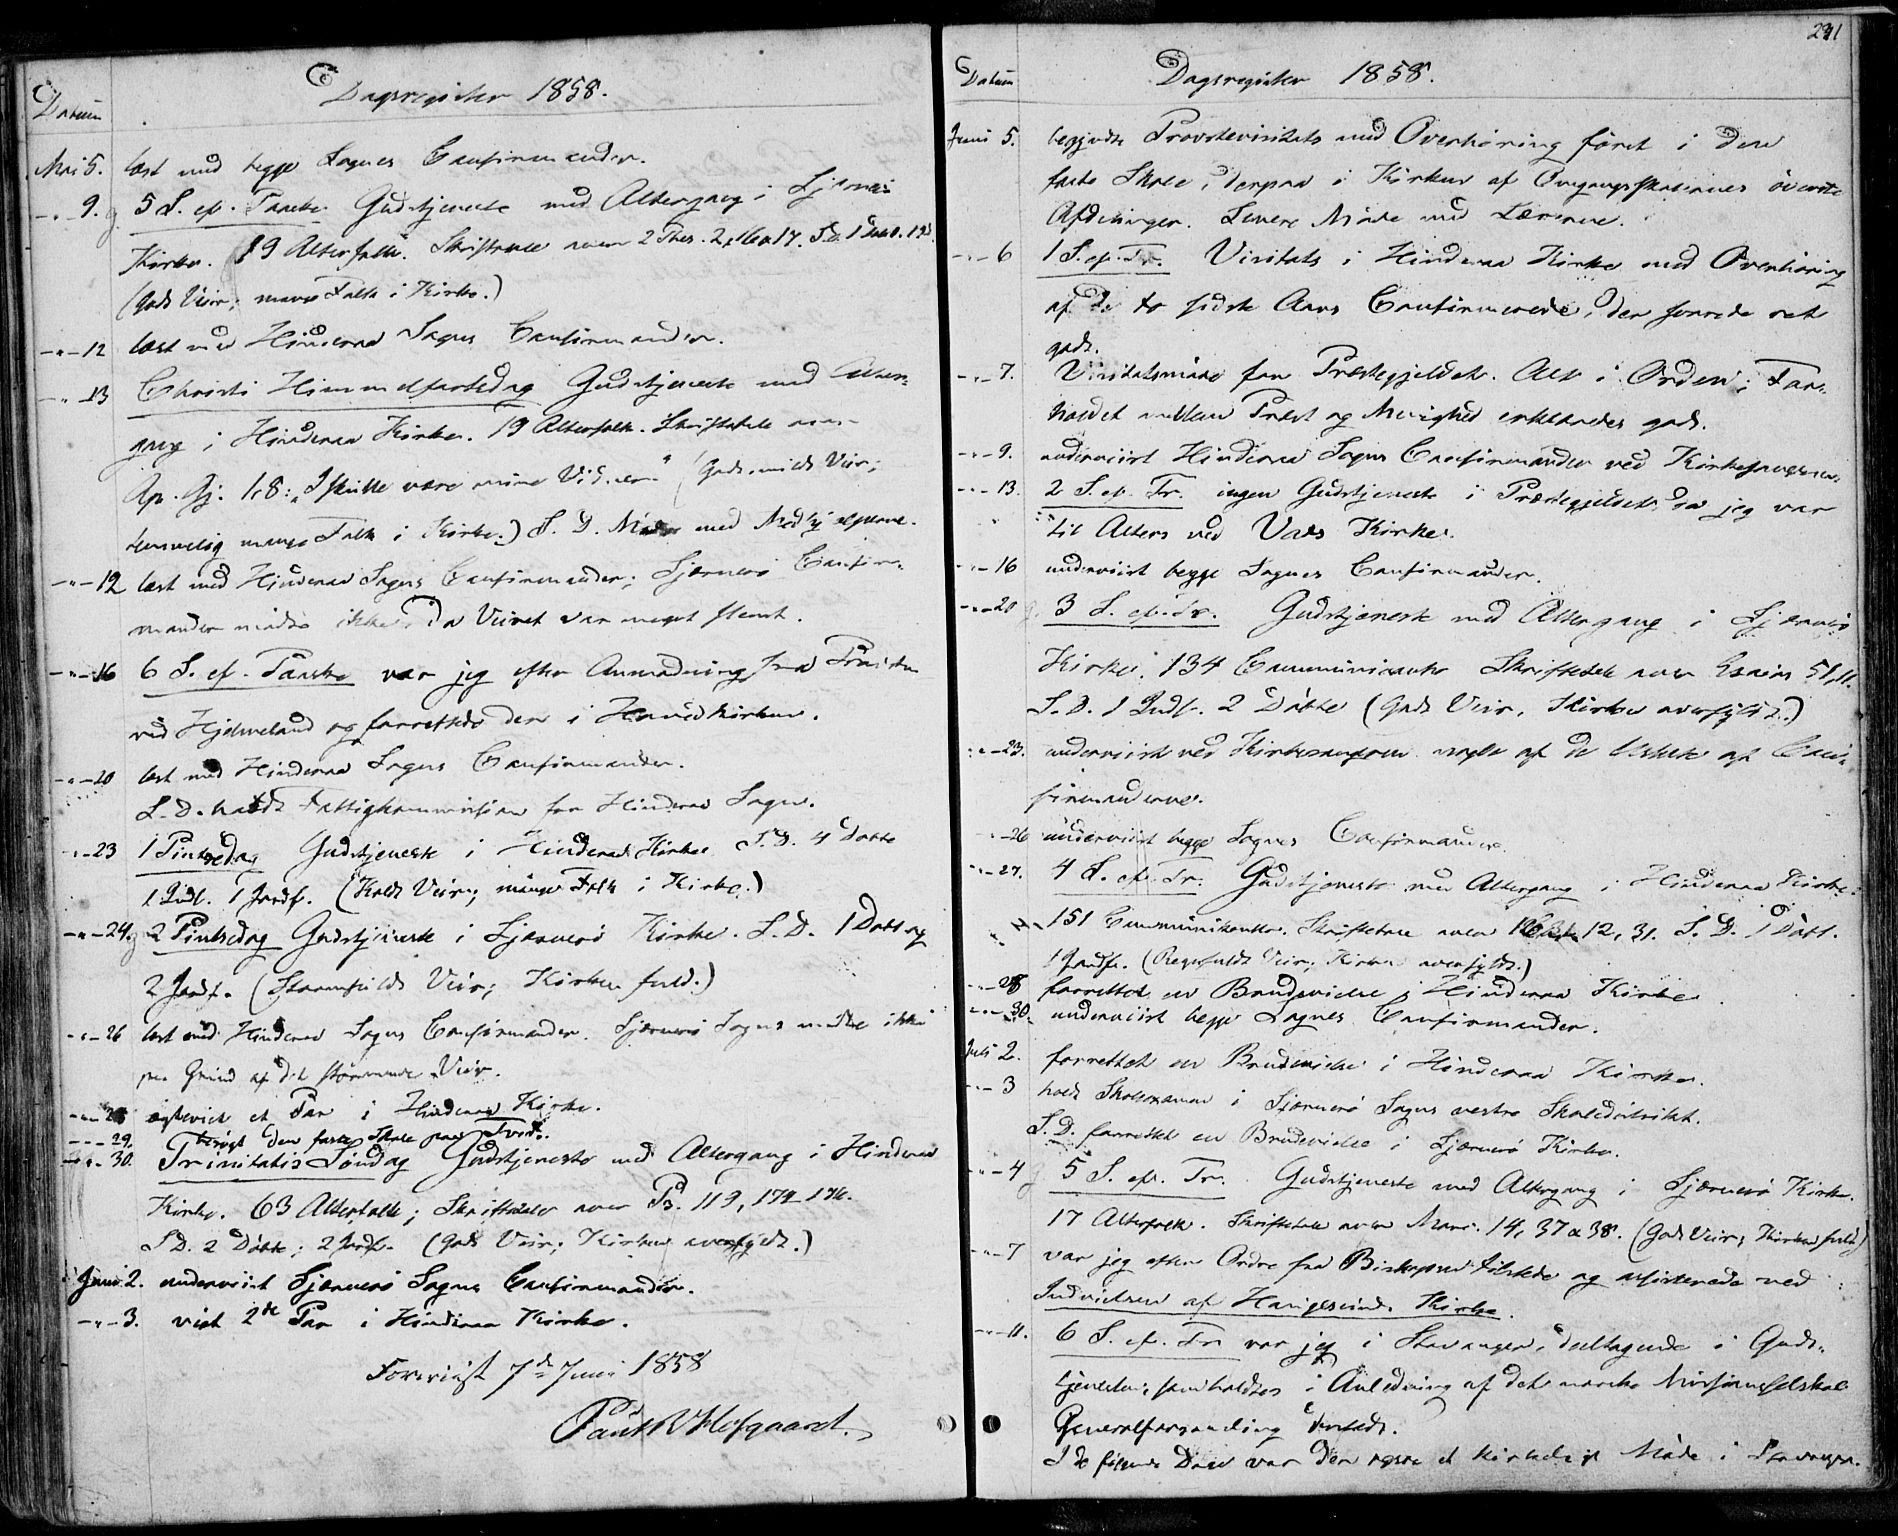 Dagsregister 1858.
Datum
Mai 5. læst med begge Sognes Confirmander.
-"- 9. 5 S. ef. Paaske. Gudstjeneste med Altergang i Sjærnerø
Kirke. 19 Alterfolk. Skriftetale over 2 Thes. 2, 16 & 17. S.D. 1
(Godt Veir; mange Folk i Kirke.)
-"- 12 læst med Hinderaa Sogns Confirmander.
-"- 13 Christi Himmelfartsdag Gudstjeneste med Alter-
gang i Hinderaa Kirke. 19 Alterfolk. Skriftetale over
Ap. Gj. 1,8: "I skulle være mine Vidner" (Godt, mildt Veir;
temmelig mange Folk i Kirke.) S. D. Møde med Medhjelperne.
-"- 12 læst med Hinderaa Sogns Confirmander; Sjærnerø Confir-
mander mødte ikke, da Veiret var meget slemt.
-"- 16 6 S. ef. Paaske var jeg efter Anmodning fra Præsten
ved Hjelmeland og forrettede der i Hovedkirken.
-"- 20 læst med Hinderaa Sogns Confirmander.
S. D. holdt Fattigkommission for Hinderaa Sogn.
-"- 23 1 Pintsedag Gudstjeneste i Hinderaa Kirke S.D. 4 Døbte
1 Indl. 1 Jordf. (Koldt Veir; mange Folk i Kirke.)
-"- 24. 2 Pintsedag Gudstjeneste i Sjærnerø Kirke. S. D. 1 Døbt og
2 Jordf. (Stormfuldt Veir; Kirken fuld.)
-"- 26 læst med Hinderaa Sogns Confirmander. Sjærnerø Sogns mødte ikke
paa Grund af det stormende Veir.
-"- 28 ægteviet et Par i Hinderaa Kirke.
-"- 29. besøgt den faste Skole paa Tveit.
-"- 30. Trinitatis Søndag Gudstjeneste med Altergang i Hinderaa
Kirke. 63 Alterfolk; Skriftetale over Ps. 119, 174-176.
S D. 2 Døbte; 2 Jordf. (Godt Veir; Kirken overfyldt.)
Juni 2. underviist Sjærnerø Sogns Confirmander.
-"- 3. viet 2de Par i Hinderaa Kirke.
Foreviist 7de Juni 1858
Hofgaard.
241
Datum Dagsregister 1858.
Juni 5. begyndte Provstevisitats med Overhøring først i den
faste Skole, derpaa i Kirken af Omgangsskolernes øverste
Afdelinger. Senere Møde med Lærerne.
-"- 6 1 S. ef. Tr. Visitats i Hinderaa Kirke med Overhøring
af de to sidste Aars Confirmerede, der svarede ret
godt.
-"- 7. Visitatsmøde for Præstegjeldet. Alt i Orden; For-
holdet mellem Præst og Menighed erklæredes godt.
-"- 9. underviist Hinderaa Sogns Confirmander ved Kirkesangeren.
-"- 13. 2 S. ef. Tr. ingen Gudstjeneste i Præstegjeldet, da jeg var
til Alters ved Vats Kirke.
-"- 16 underviist begge Sognes Confirmander.
-"- 20 3 S. ef. Tr. Gudstjeneste med Altergang i Sjærnerø
Kirke. 134 Communicanter Skriftetale over Esaias 51,11.
S. D. 1 Indl. 2 Døbte (Godt Veir, Kirken overfyldt.)
-"- 23. underviist ved Kirkesangeren nogle af de af Con-
firmanderne.
-"- 26 underviist begge Sognes Confirmander.
-"- 27. 4 S. ef. Tr. Gudstjeneste med Altergang i Hinderaa Kirke.
151 Communikanter. Skriftetale over 12, 31. S. D. 1 Døbt.
1 Jordf. (Regnfuldt Veir; Kirken overfyldt.)
-"- 28 forrettet en Brudevielse i Hinderaa Kirke
-"- 30. underviist begge Sognes Confirmander.
Juli 2. forrettet en Brudevielse i Hinderaa Kirke.
-"- 3 holdt Skoleexamen i Sjærnerø Sogns vestre Skoledistrikt.
S. D. forrettet en Brudevielse i Sjærnerø Kirke.
-"- 4 5 S. ef. Tr. Gudstjeneste med Altergang i Sjærnerø Kirke.
17 Alterfolk. Skriftetale over Marc. 14, 37 & 38. (Godt Veir; Kirken fuld)
-"- 7 var jeg efter Ordre fra Biskopen tilstede og assisterede ved
Indvielsen af Haugesunds Kirke.
-"- 11. 6 S. ef. Tr. var jeg i Stavanger, deltagende i Guds-
tjenesten, som holdtes i Anledning af det norske Missionsselskabs
Generalforsamling dersteds.
I de følgende Dage var der et kirkeligt Møde i Stavanger.